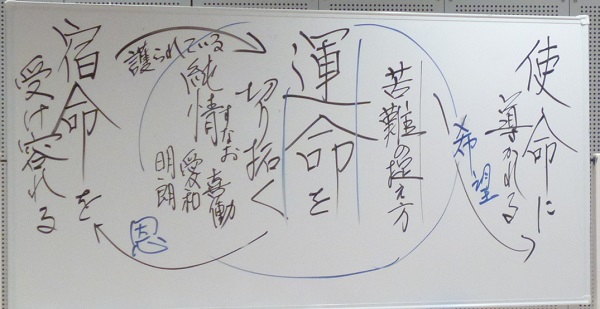 使命に
導かれる
希望
苦難の捉え方
運命を
切り拓く
喜働
すなお 愛和
純情 明朗
護られている
恩
宿命を
受け容れる